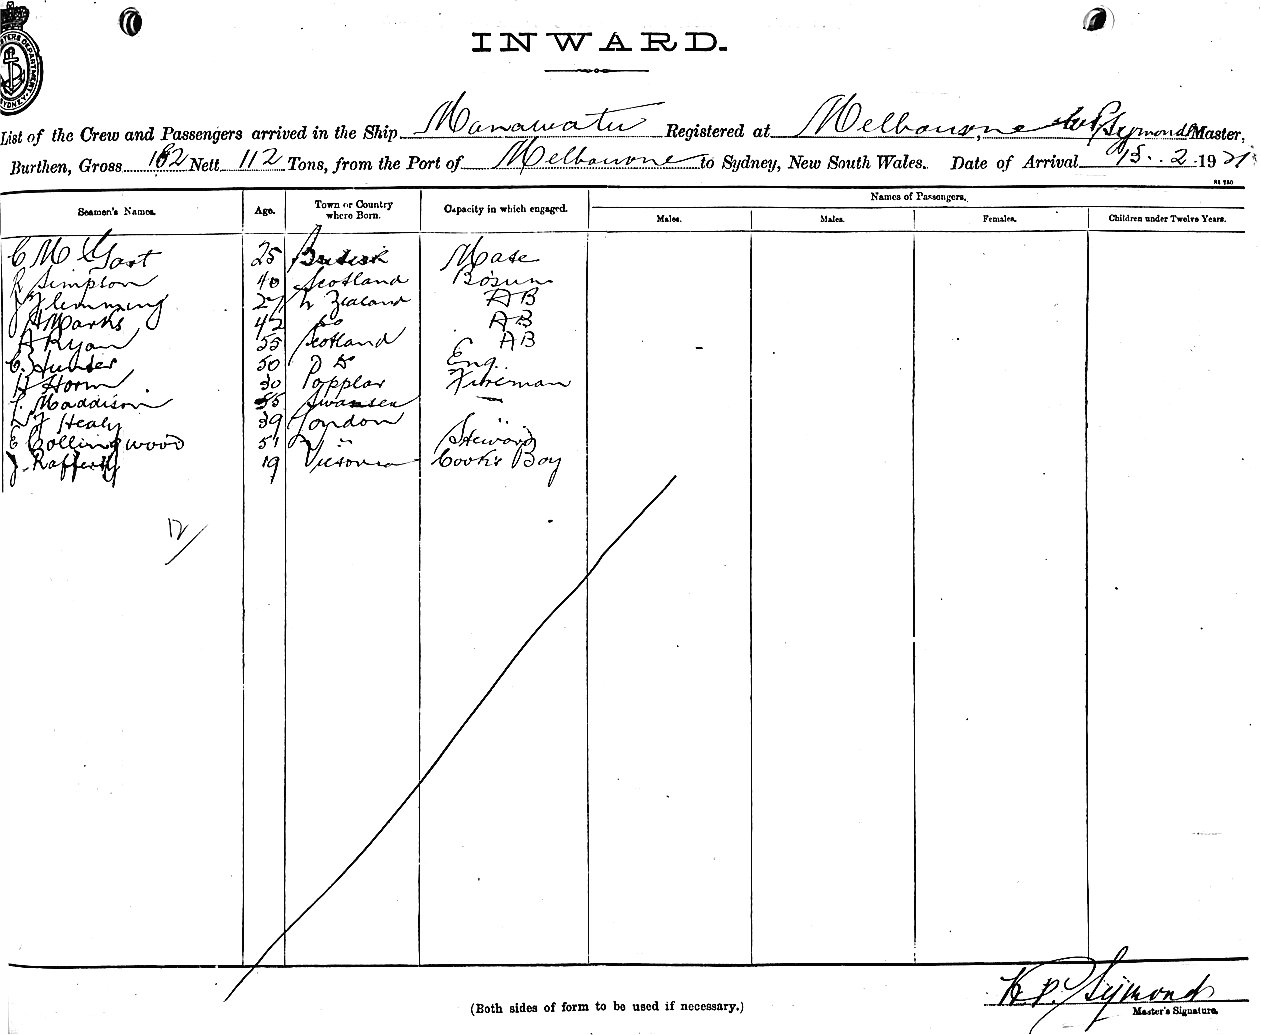 INWARD.
List of the Crew and Passengers arrived in the Ship Manawatu Registered at Melbourne, Symonds Master,
Burthen, Gross 182 Nett 112 Tons, from the Port of Melbourne to Sydney, New South Wales. Date of Arrival 15.2.1921
Seamen's Names. Age. Town or Country where Born. Capacity in which engaged. Names of Passengers.
Males. Males. Females. Children under Twelve Years.
C 25 British Mate
R Simpson 40 Scotland Bosun
J Flemming 27 N Zealand AB
Marks 42 Do AB
A Ryan 55 Scotland AB
C. Hunter 50 Do Eng.
H Horn 30 Popplar Fireman
Maddison 55 Swansea
Healy 39 London "
E Collingwood 51 " Steward
J. Rafferty 19 Victoria Cook's Boy
12
H P. Symonds
(Both sides of form to be used if necessary.)
Master's Signature.